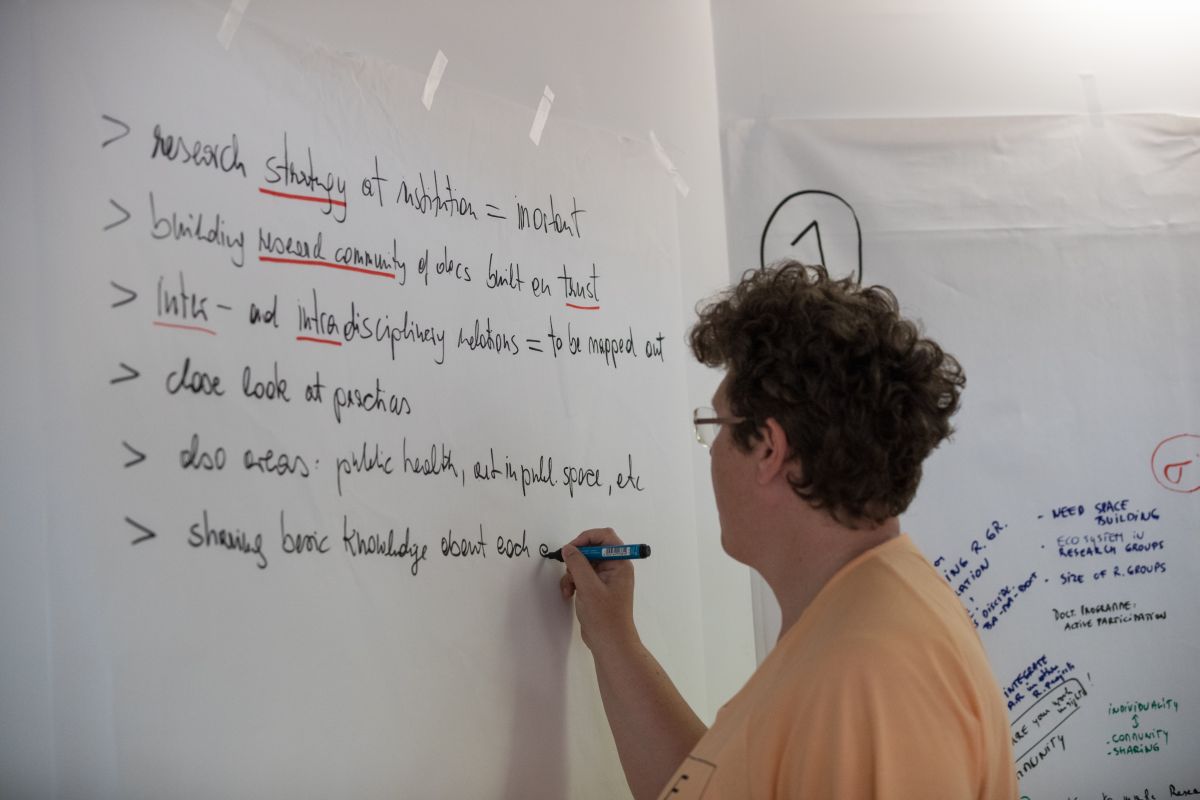 > research strategy at institution = imortant
> building research community of docs built on trust
> Inter- and intradisciplinary relations = to be mapped out
> close look at practices
> also areas: public health, art in publ. space, etc
> sharing basic knowledge about each
1
σ
- NEED SPACE
BUILDING
- ECO SYSTEM IN
RESEARCH GROUPS
- SIZE OF R. GROUPS
DOCT. PROGRAMME:
ACTIVE PARTICIPATION
ING R. GR.
ATION
DISCIPL.
BA-MA-DOCT
INTEGRATE
AR in other
R. Projects
ARE your work
insight!
MMUNITY
INDIVIDUALITY
- COMMUNITY
- SHARING